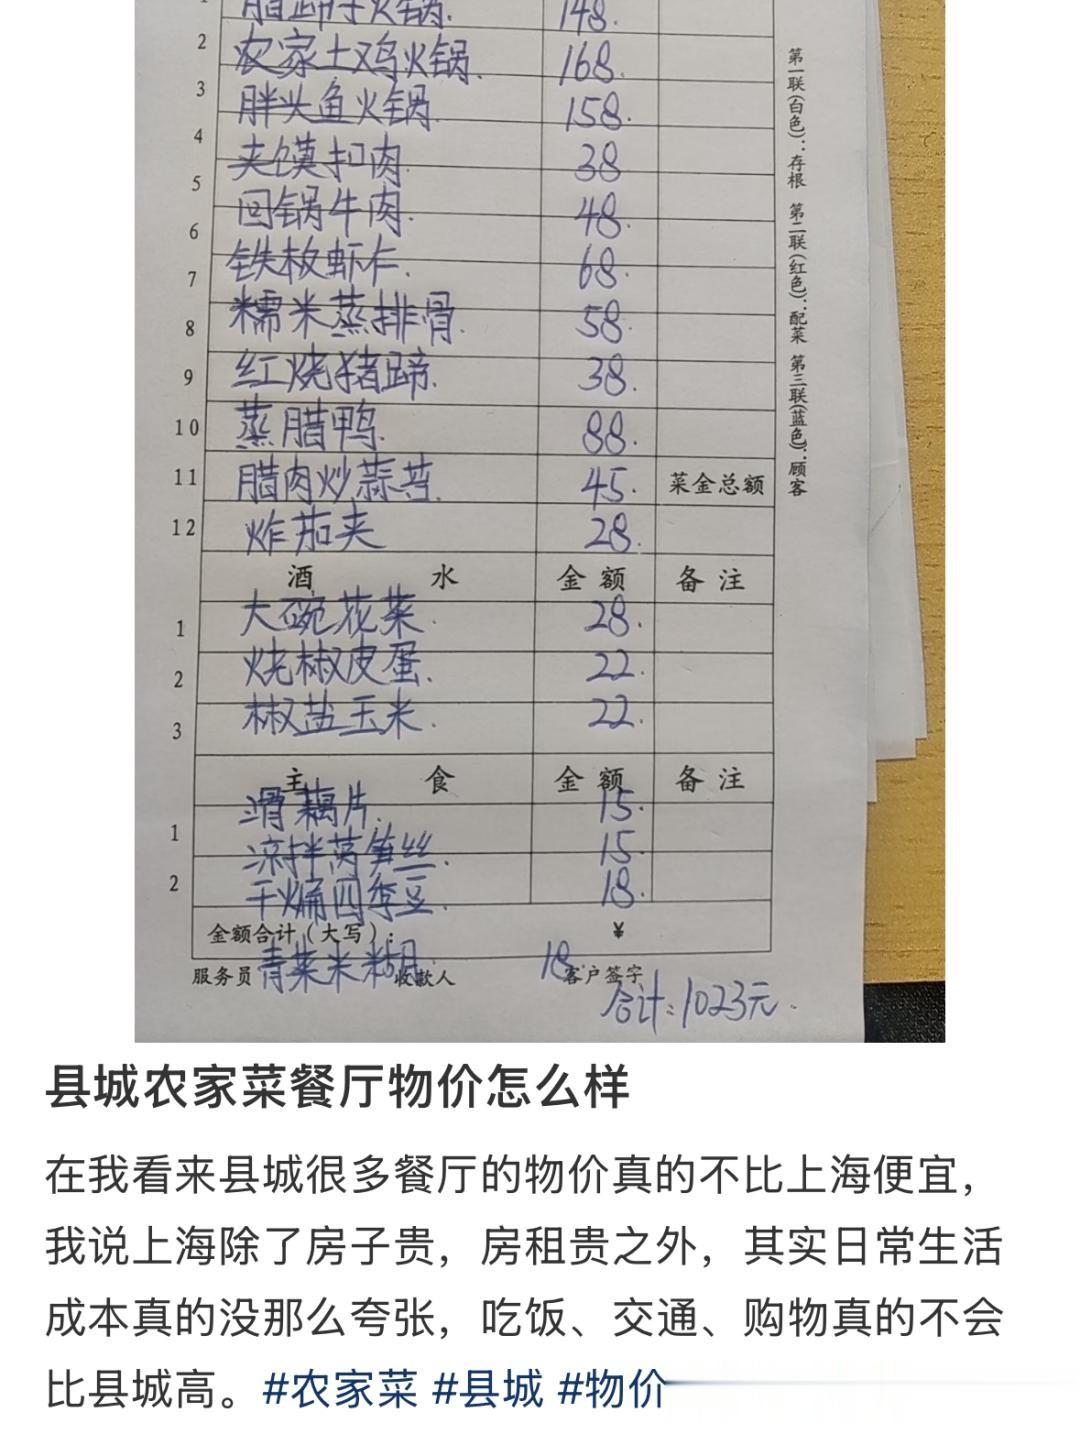 1 腊蹄子火锅. 148.
2 农家土鸡火锅. 168.
3 胖头鱼火锅. 158.
4 夹馍扣肉. 38
5 回锅牛肉. 48.
6 铁板虾仁. 68.
7 糯米蒸排骨. 58.
8 红烧猪蹄. 38.
9 蒸腊鸭. 88.
10 腊肉炒蒜苔. 45. 菜金总额
11 炸茄夹 28.
12
酒 水 金 额 备 注
大碗花菜. 28.
1 烧椒皮蛋. 22.
2 椒盐玉米. 22.
3
主 食 金 额 备 注
滑藕片. 15.
1 凉拌莴笋丝. 15.
2 干煸四季豆. 18.
金额合计（大写）: ¥
青菜米糊. 18.
服务员 收款人 客户签字
合计:1023元.
第一联(白色):存根 第二联(红色):配菜 第三联(蓝色):顾客
县城农家菜餐厅物价怎么样
在我看来县城很多餐厅的物价真的不比上海便宜，
我说上海除了房子贵，房租贵之外，其实日常生活
成本真的没那么夸张，吃饭、交通、购物真的不会
比县城高。#农家菜 #县城 #物价